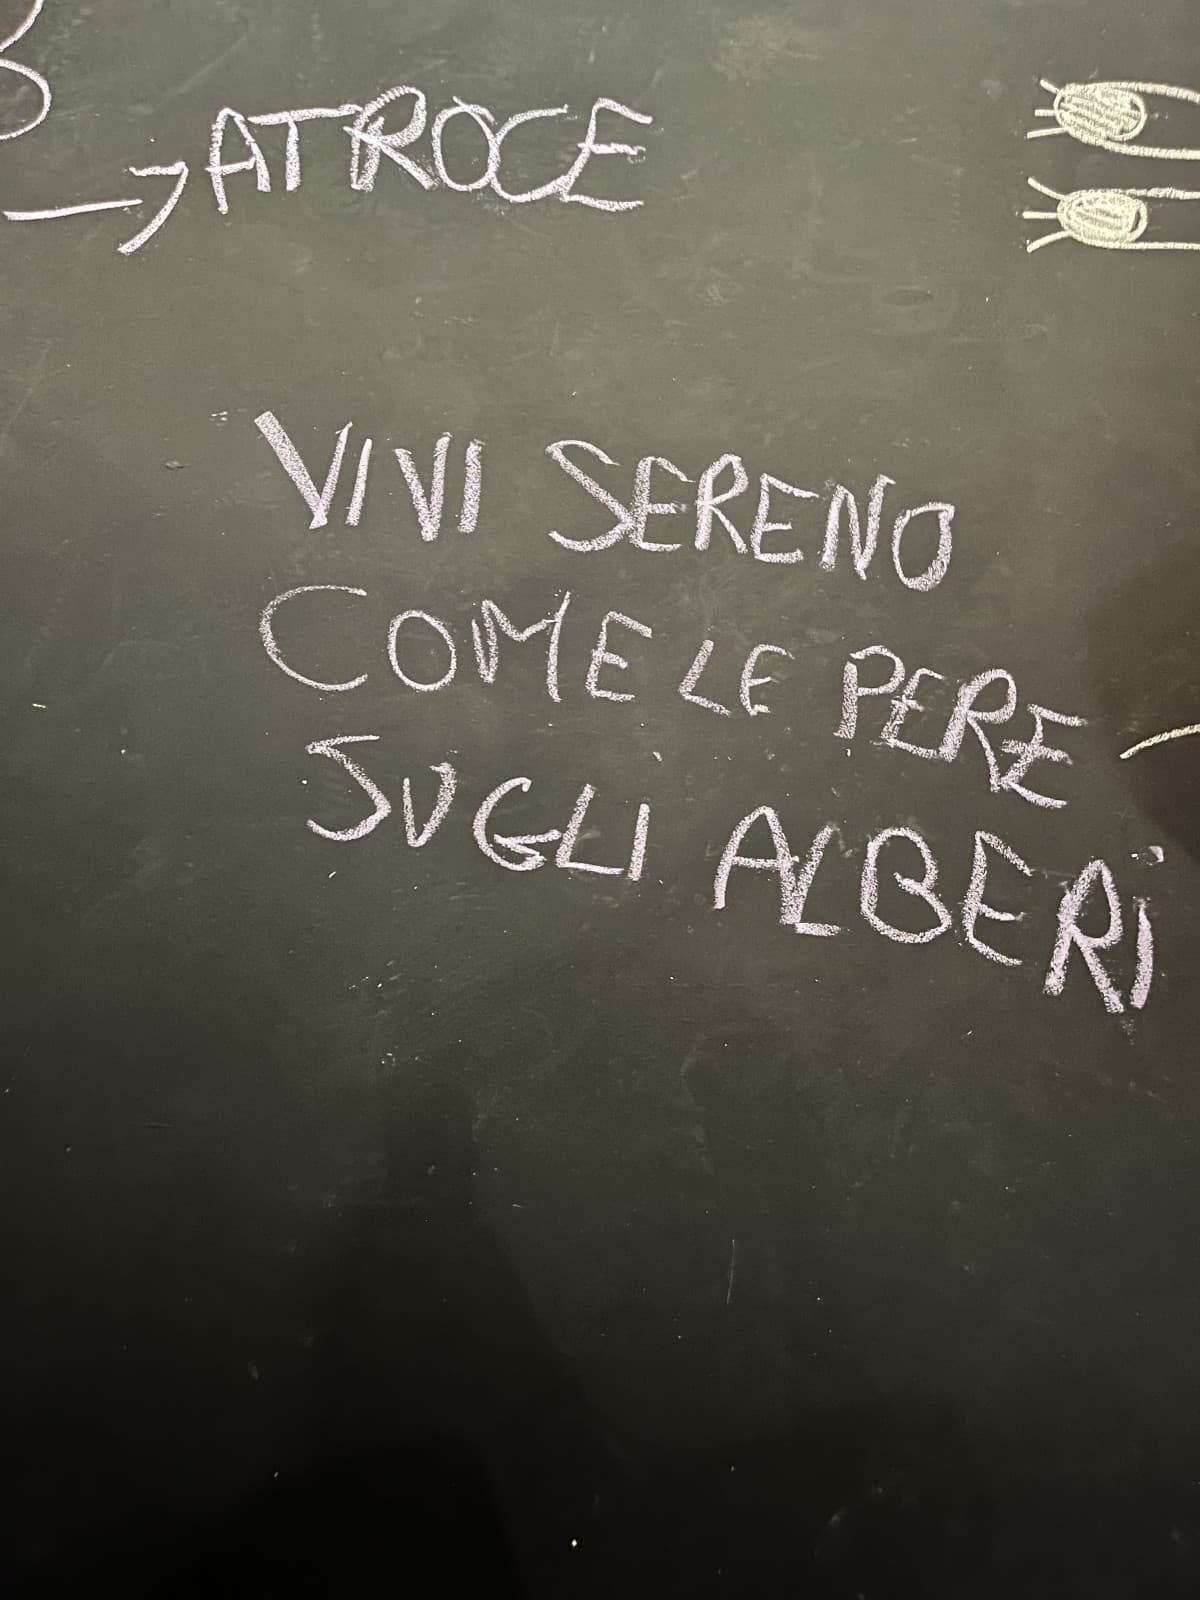 ATROCE
VIVI SERENO
COME LE PERE
SUGLI ALBERI